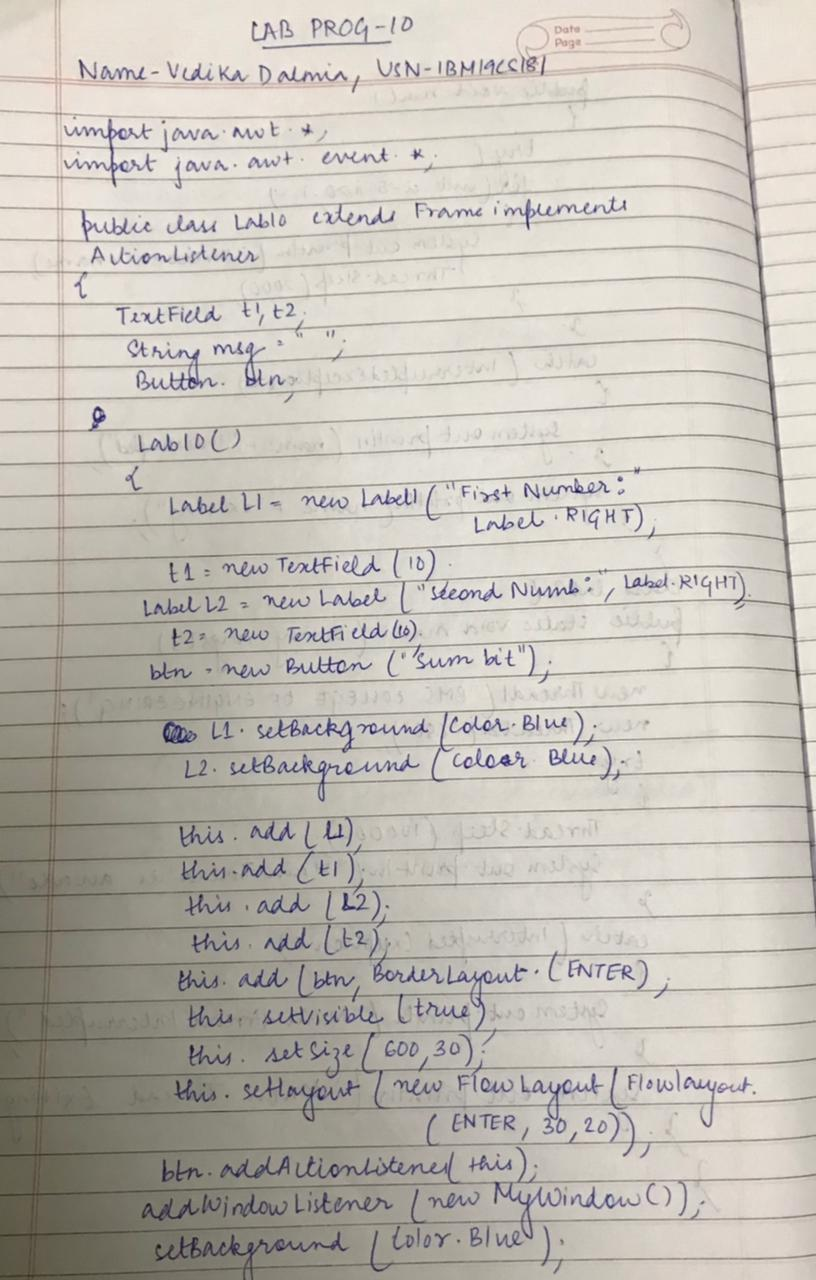 LAB PROG-10
Date
Page
Name- Vedika Dalmia, USN-1BM19CS181
import java.awt.*;
import java.awt.event.*;
public class Lab10 extends Frame implements
ActionListener
{
TextField t1, t2;
String msg = " ";
Button. btn;
Lab10()
{
Label L1 = new Label1 ("First Number:"
Label.RIGHT);
t1 = new TextField (10).
Label L2 = new Label ("Second Numb:", Label.RIGHT);
t2 = new TextField (10).
btn = new Button ("Sum bit");
L1. setBackground (Color.Blue);
L2. setBackground (Color Blue);
this. add (L1);
this.add (t1);
this. add (L2);
this. add (t2);
this. add (btn, BorderLayout. (ENTER);
this. setVisible (true);
this. setSize (600, 30);
this. setlayout (new FlowLayout (Flowlayout.
(ENTER, 30, 20));
btn. addActionListener( this);
addWindowListener (new MyWindow());
setBackground (Color.Blue);